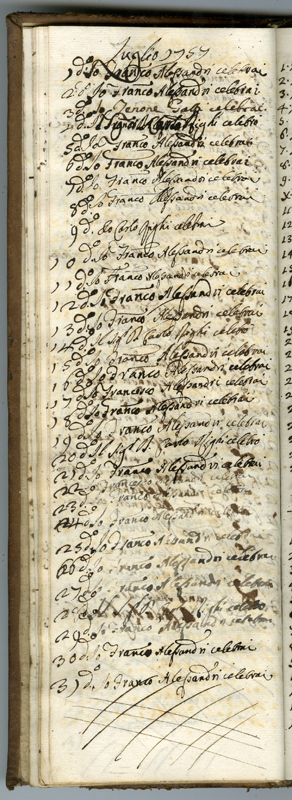 Luglio 1757
1 d.o Io Franco Alessandri celebrai
2 d.o Io Franco Alessandri celebrai
3 d.o Io celebrai
4 d.o Il Sig.r D. Carlo Righi celebrò
5 d.o Io Franco Alessandri celebrai
6 d.o Io Franco Alessandri celebrai
7 d.o Io Franco Alessandri celebrai
8 d.o Io Franco Alessandri celebrai
9 d.o Io Carlo Righi celebrai
10 d.o Io Franco Alessandri celebrai
11 d.o Io Franco Alessandri celebrai
12 d.o Io Franco Alessandri celebrai
13 d.o Io Franco Alessandri celebrai
14 d.o Il Sig.r D. Carlo Righi celebrò
15 d.o Io Franco Alessandri celebrai
16 d.o Io Franco Alessandri celebrai
17 d.o Io Francesco Alessandri celebrai
18 d.o Io Franco Alessandri celebrai
19 d.o Io Franco Alessandri celebrai
20 d.o Il Sig.r D. Carlo Righi celebrò
21 d.o Io Franco Alessandri celebrai
22 d.o Io Francesco
23 d.o Io Franco Alessandri
24 d.o Io Franco Alessandri
25 d.o Io Franco Alessandri celebrai
26 d.o Io Franco Alessandri celebrai
27 d.o Io Franco Alessandri celebrai
28 d.o Righi celebrò
29 d.o Io Franco Alessandri celebrai
30 d.o Io Franco Alessandri celebrai
31 d.o Io Franco Alessandri celebrai